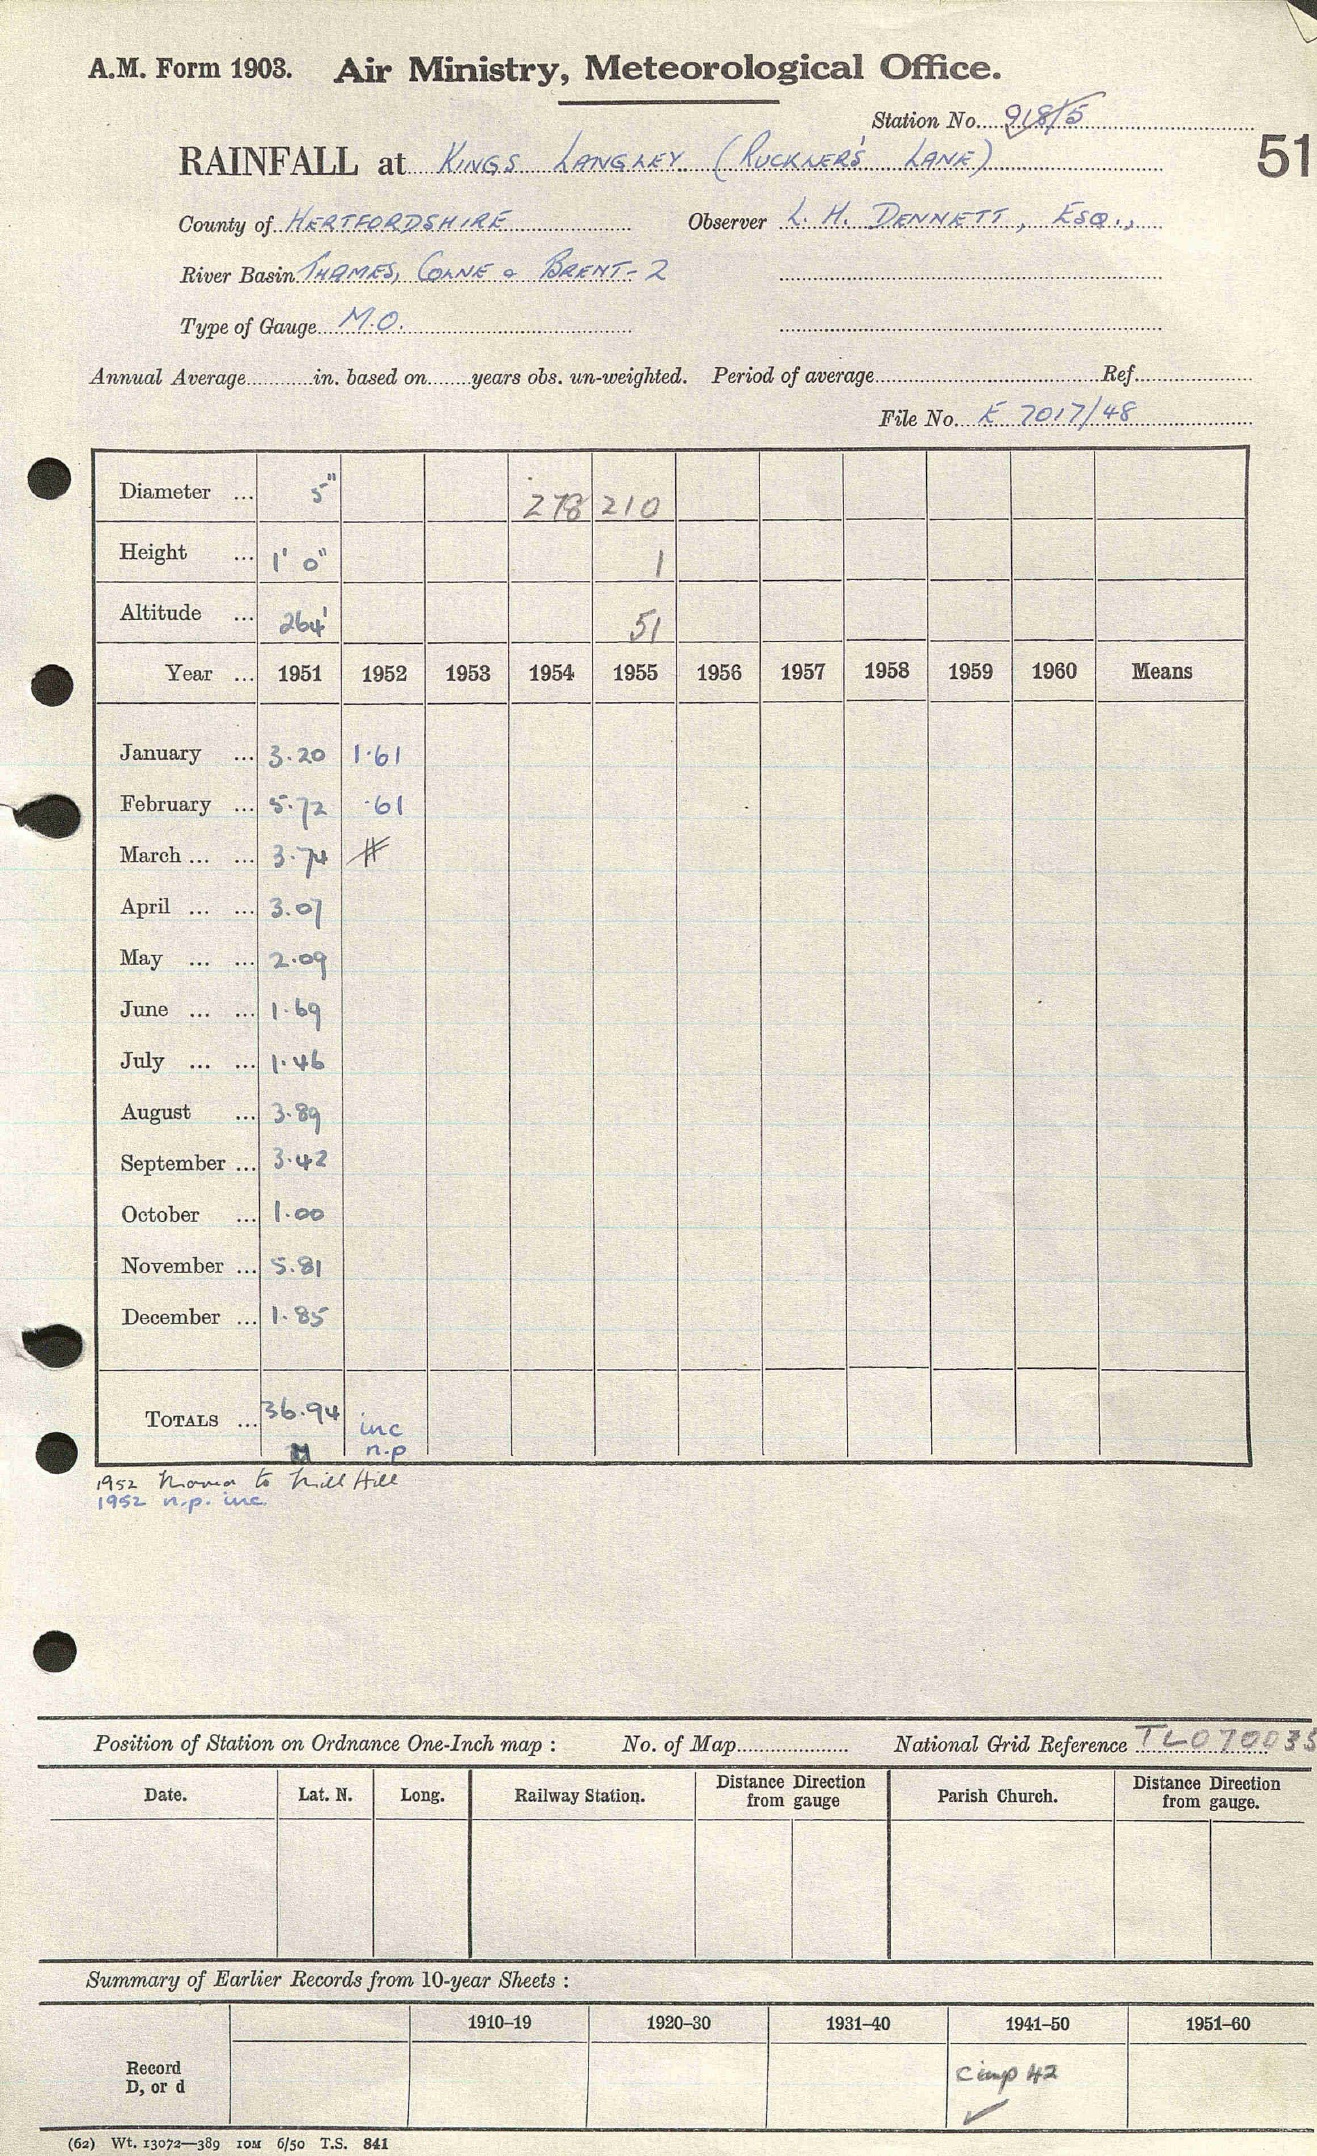 A.M. Form 1903. Air Ministry, Meteorological Office.
Station No. 918/5
51
RAINFALL at KINGS LANGLEY (RUCKNER'S LANE)
County of HERTFORDSHIRE Observer L. H. DENNETT, ESQ.,
River Basin THAMES, COLNE & BRENT-2
Type of Gauge M.O.
Annual Average in. based on years obs. un-weighted. Period of average Ref.
File No. E 7017/48
Diameter ... 5" 278 210
Height ... 1' 0" 1
Altitude ... 264' 51
Year ... 1951 1952 1953 1954 1955 1956 1957 1958 1959 1960 Means
January ... 3.20 1.61
February ... 5.72 .61
March ... ... 3.74 #
April ... ... 3.07
May ... ... 2.09
June ... ... 1.69
July ... ... 1.46
August ... 3.89
September ... 3.42
October ... 1.00
November ... 5.81
December ... 1.85
TOTALS ... 36.94 inc
n.p
1952 Moved to Mill Hill
1952 n.p. inc.
Position of Station on Ordnance One-Inch map : No. of Map National Grid Reference TL070035
Date. Lat. N. Long. Railway Station. Distance Direction from gauge Parish Church. Distance Direction from gauge.
Summary of Earlier Records from 10-year Sheets :
1910–19 1920–30 1931–40 1941–50 1951–60
Record
D, or d
42
(62) Wt. 13072—389 10M 6/50 T.S. 841